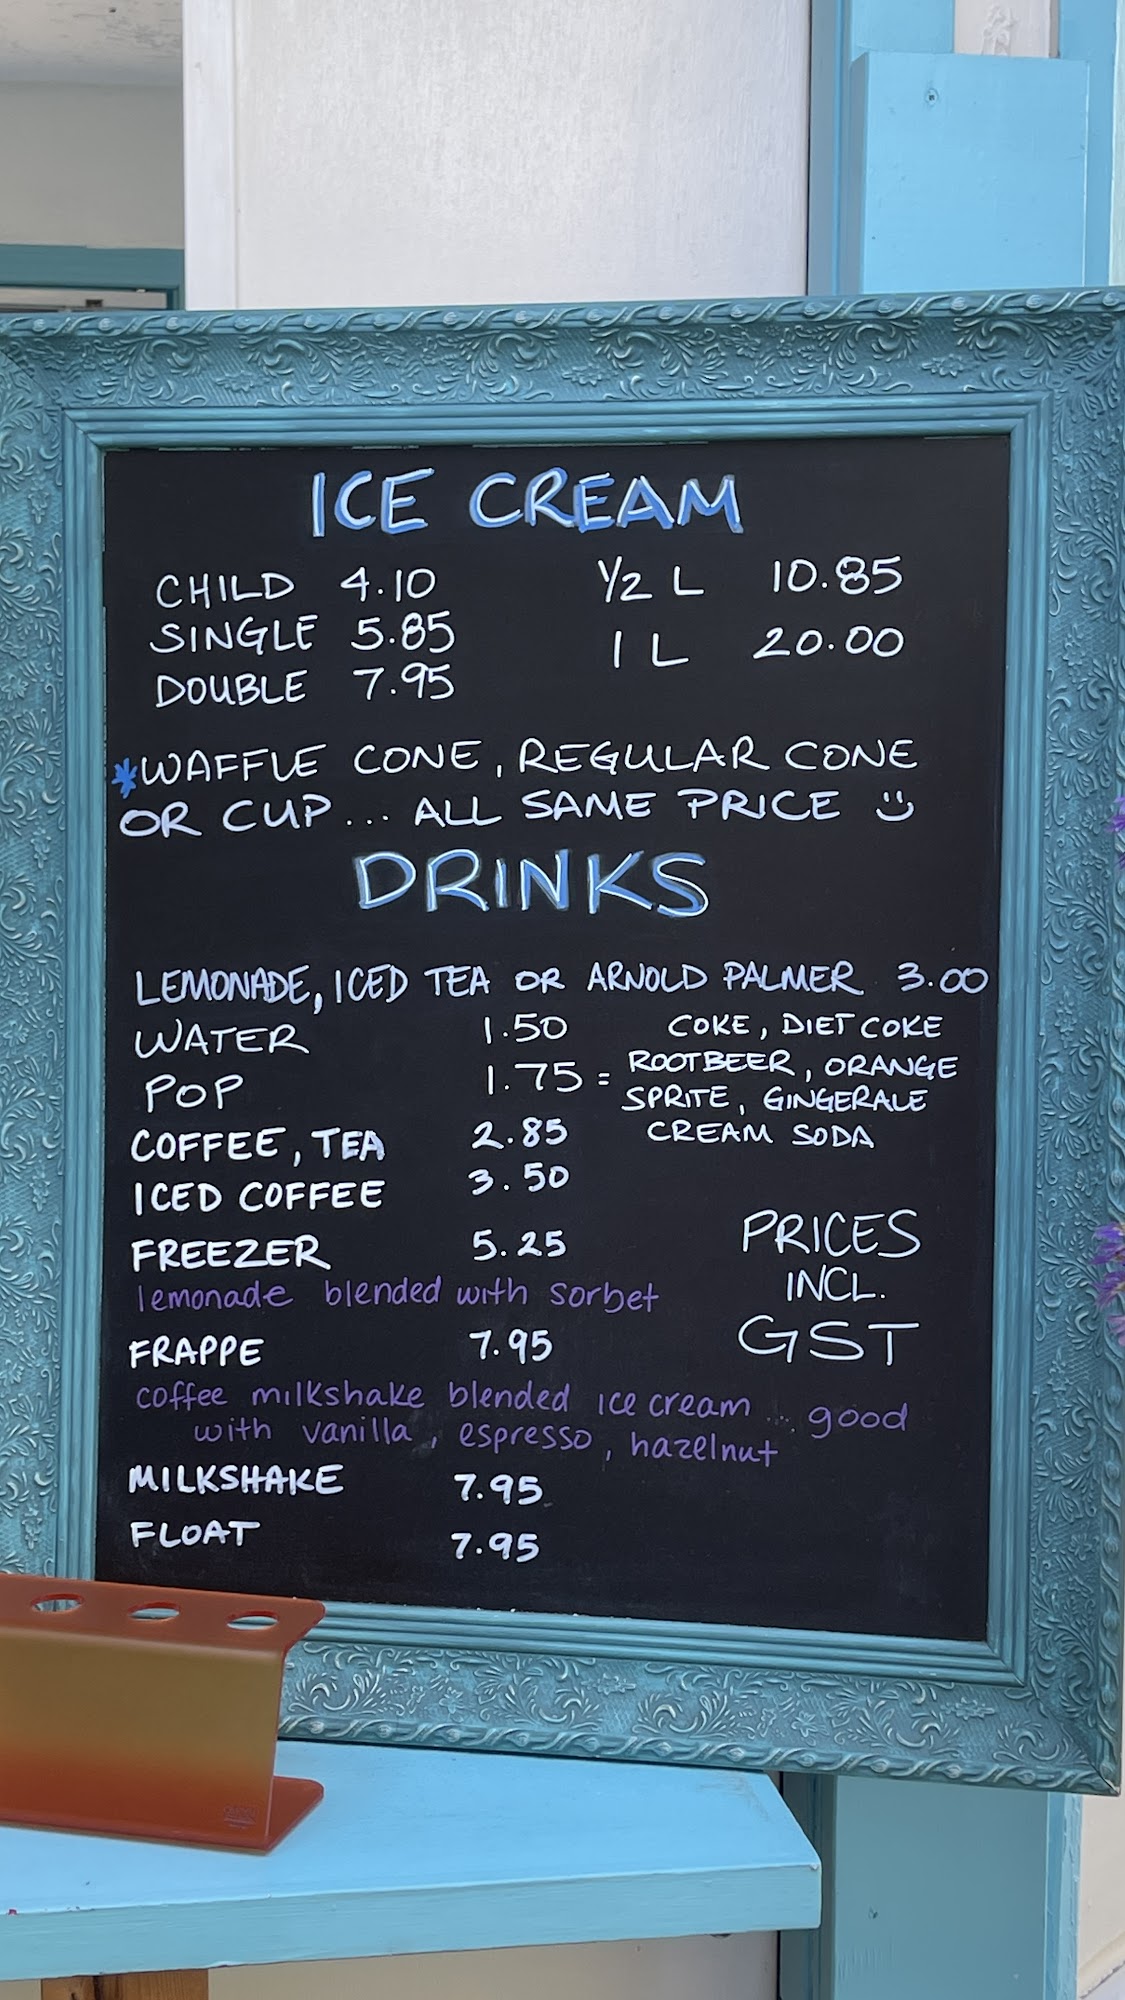 ICE CREAM
CHILD 4.10
SINGLE 5.85
DOUBLE 7.95
1/2 L 10.85
1 L 20.00
*WAFFLE CONE, REGULAR CONE
OR CUP... ALL SAME PRICE
DRINKS
LEMONADE, ICED TEA OR ARNOLD PALMER 3.00
WATER 1.50
POP 1.75 = COKE, DIET COKE
ROOTBEER, ORANGE
SPRITE, GINGERALE
CREAM SODA
COFFEE, TEA 2.85
ICED COFFEE 3.50
FREEZER 5.25
lemonade blended with sorbet
FRAPPE 7.95
coffee milkshake blended ice cream... good
with vanilla, espresso, hazelnut
MILKSHAKE 7.95
FLOAT 7.95
PRICES
INCL.
GST